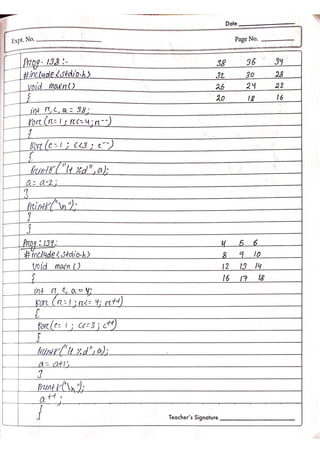 Date
Expt. No.
Page No.
Prog- 138:-
38 36 34
#include<stdio.h>
32 30 28
void main()
26 24 22
{
20 18 16
int r,c,a=38;
for(r=1;r<=4;r--)
{
for(c=1; c<3; c--)
{
printf("\t %d",a);
a=a-2;
}
printf("\n");
}
}
Prog:139:
4 5 6
#include<stdio.h>
8 9 10
void main()
12 13 14
{
16 17 18
int r, c, a=4;
for (r=1;r<=4; r++)
{
for(c=1; c<=3; c++)
{
printf("\t %d",a);
a=a+1;
}
printf("\n");
a++;
}
Teacher's Signature